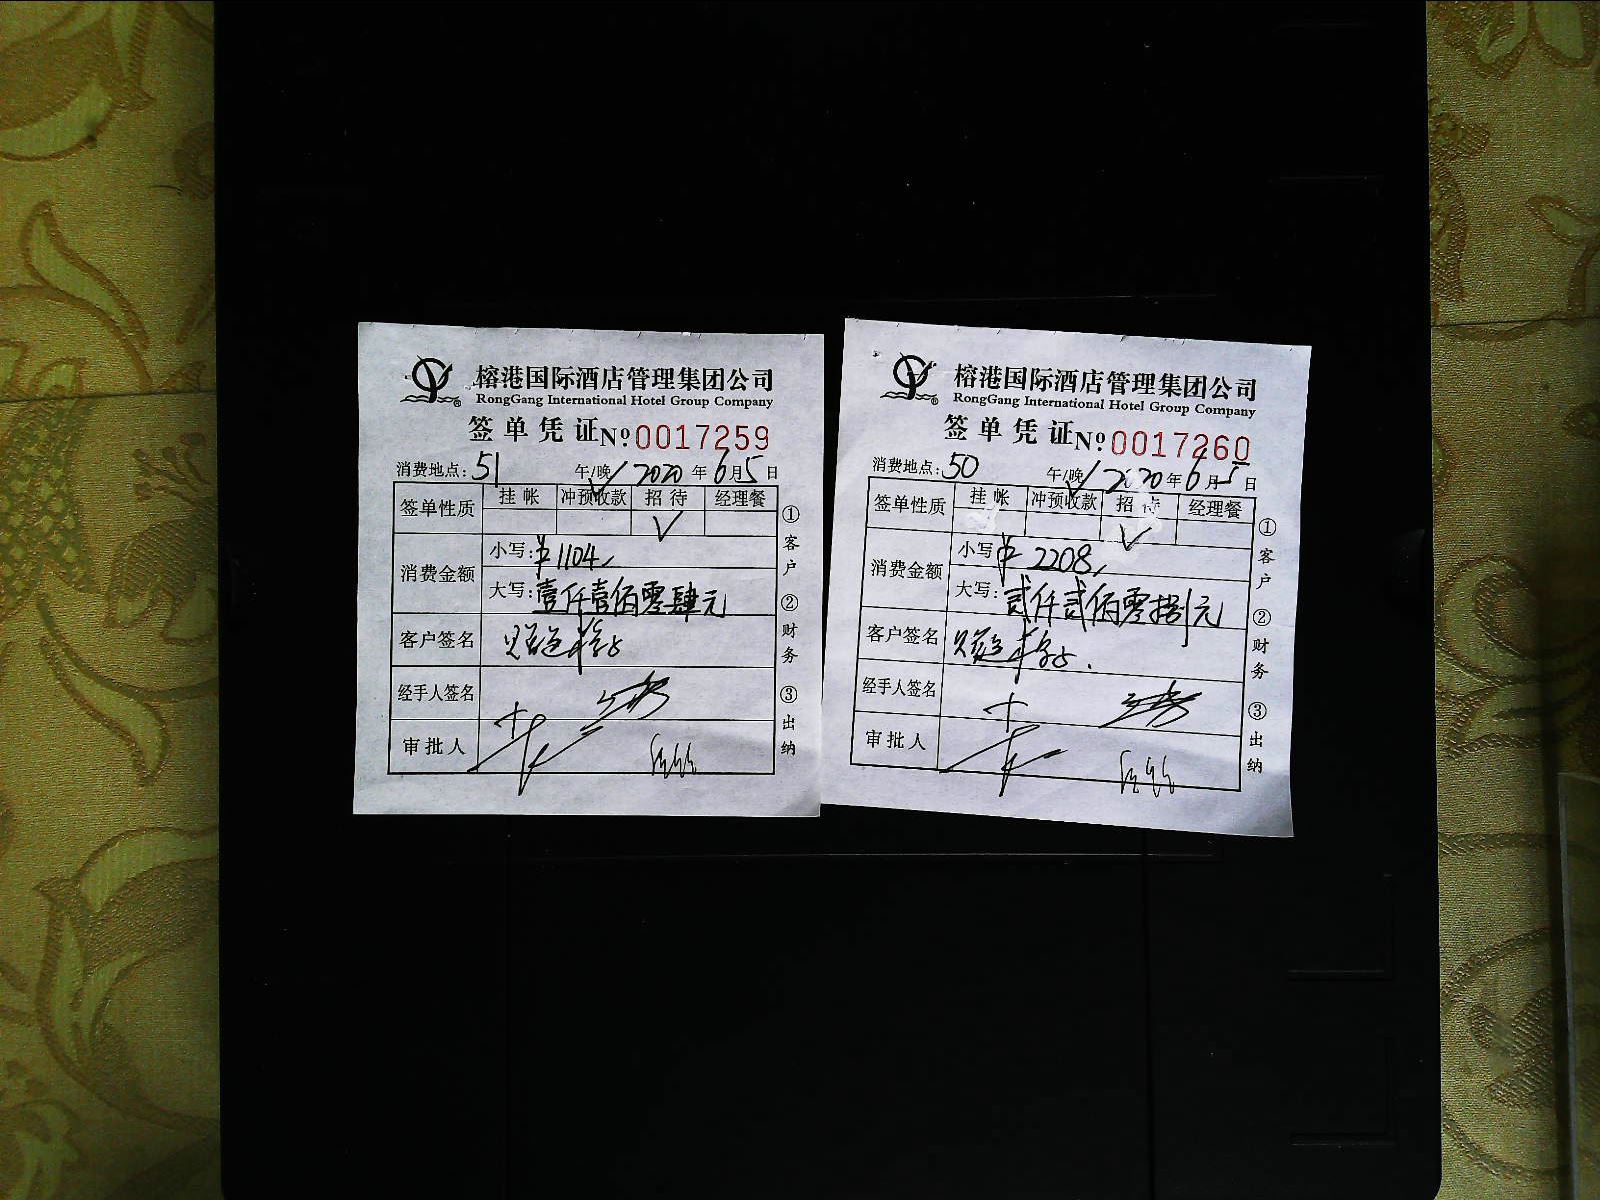 榕港国际酒店管理集团公司
RongGang International Hotel Group Company
签单凭证 No 0017259
消费地点: 51 午/晚 2020年6月5日
签单性质 挂帐 冲预收款 招待 经理餐
✓
消费金额
小写: ¥1104
大写: 壹仟壹佰零肆元
客户签名
经手人签名
审批人
①客户 ②财务 ③出纳
榕港国际酒店管理集团公司
RongGang International Hotel Group Company
签单凭证 No 0017260
消费地点: 50 午/晚 2020年6月5日
签单性质 挂帐 冲预收款 招待 经理餐
✓
消费金额
小写 ¥2208
大写: 贰仟贰佰零捌元
客户签名
经手人签名
审批人
①客户 ②财务 ③出纳